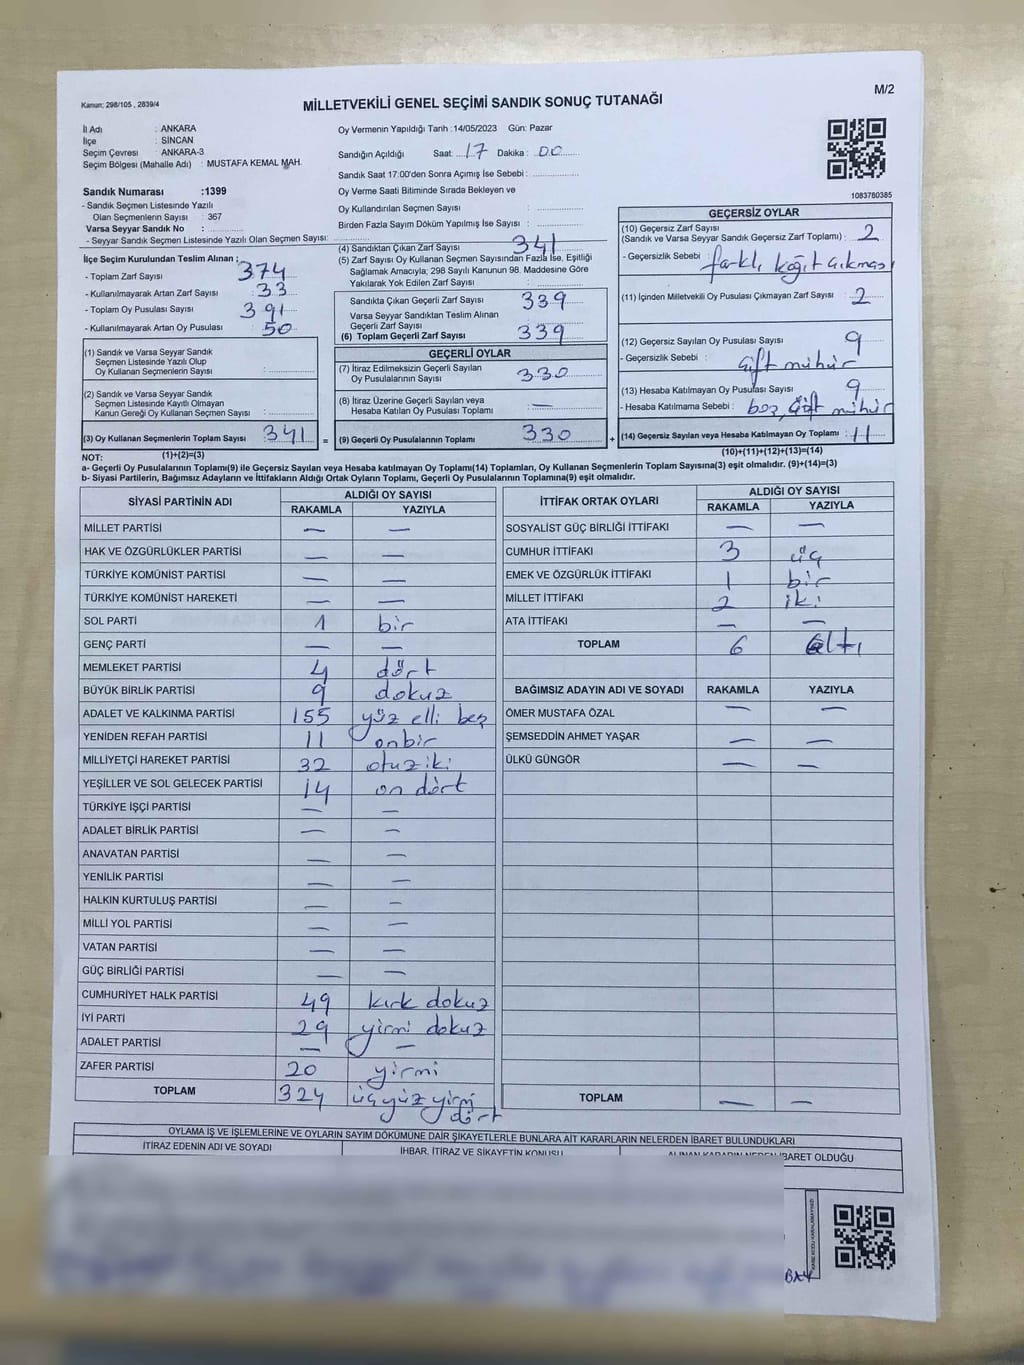 M/2
Kanun: 298/105 , 2839/4
MİLLETVEKİLİ GENEL SEÇİMİ SANDIK SONUÇ TUTANAĞI
İl Adı : ANKARA
İlçe : SİNCAN
Seçim Çevresi : ANKARA-3
Seçim Bölgesi (Mahalle Adı) : MUSTAFA KEMAL MAH.
Sandık Numarası :1399
- Sandık Seçmen Listesinde Yazılı
Olan Seçmenlerin Sayısı : 367
Varsa Seyyar Sandık No :
- Seyyar Sandık Seçmen Listesinde Yazılı Olan Seçmen Sayısı:
Oy Vermenin Yapıldığı Tarih :14/05/2023 Gün: Pazar
Sandığın Açıldığı Saat: 17 Dakika : 00
Sandık Saat 17:00'den Sonra Açımış İse Sebebi :
Oy Verme Saati Bitiminde Sırada Bekleyen ve
Oy Kullandırılan Seçmen Sayısı :
Birden Fazla Sayım Döküm Yapılmış İse Sayısı :
1083760385
İlçe Seçim Kurulundan Teslim Alınan ;
- Toplam Zarf Sayısı : 374
- Kullanılmayarak Artan Zarf Sayısı : 33
- Toplam Oy Pusulası Sayısı : 391
- Kullanılmayarak Artan Oy Pusulası : 50
(1) Sandık ve Varsa Seyyar Sandık
Seçmen Listesinde Yazılı Olup
Oy Kullanan Seçmenlerin Sayısı :
(2) Sandık ve Varsa Seyyar Sandık
Seçmen Listesinde Kayıtlı Olmayan
Kanun Gereği Oy Kullanan Seçmen Sayısı :
(3) Oy Kullanan Seçmenlerin Toplam Sayısı : 341 =
(4) Sandıktan Çıkan Zarf Sayısı : 341
(5) Zarf Sayısı Oy Kullanan Seçmen Sayısından Fazla İse, Eşitliği
Sağlamak Amacıyla; 298 Sayılı Kanunun 98. Maddesine Göre
Yakılarak Yok Edilen Zarf Sayısı :
Sandıkta Çıkan Geçerli Zarf Sayısı : 339
Varsa Seyyar Sandıktan Teslim Alınan
Geçerli Zarf Sayısı :
(6) Toplam Geçerli Zarf Sayısı : 339
GEÇERLİ OYLAR
(7) İtiraz Edilmeksizin Geçerli Sayılan
Oy Pusulasının Sayısı : 330
(8) İtiraz Üzerine Geçerli Sayılan veya
Hesaba Katılan Oy Pusulası Toplamı : —
(9) Geçerli Oy Pusulalarının Toplamı : 330 +
GEÇERSİZ OYLAR
(10) Geçersiz Zarf Sayısı
(Sandık ve Varsa Seyyar Sandık Geçersiz Zarf Toplamı) : 2
- Geçersizlik Sebebi : farklı kağıt çıkması
(11) İçinden Milletvekili Oy Pusulası Çıkmayan Zarf Sayısı : 2
(12) Geçersiz Sayılan Oy Pusulası Sayısı : 9
- Geçersizlik Sebebi : Çift mühür
(13) Hesaba Katılmayan Oy Pusulası Sayısı : 9
- Hesaba Katılmama Sebebi : boş, çift mühür
(14) Geçersiz Sayılan veya Hesaba Katılmayan Oy Toplamı : 11
NOT: (1)+(2)=(3) (10)+(11)+(12)+(13)=(14)
a- Geçerli Oy Pusulalarının Toplamı(9) ile Geçersiz Sayılan veya Hesaba katılmayan Oy Toplamı(14) Toplamları, Oy Kullanan Seçmenlerin Toplam Sayısına(3) eşit olmalıdır. (9)+(14)=(3)
b- Siyasi Partilerin, Bağımsız Adayların ve İttifakların Aldığı Ortak Oyların Toplamı, Geçerli Oy Pusulalarının Toplamına(9) eşit olmalıdır.
SİYASİ PARTİNİN ADI ALDIĞI OY SAYISI
RAKAMLA YAZIYLA
MİLLET PARTİSİ — —
HAK VE ÖZGÜRLÜKLER PARTİSİ — —
TÜRKİYE KOMÜNİST PARTİSİ — —
TÜRKİYE KOMÜNİST HAREKETİ — —
SOL PARTİ 1 bir
GENÇ PARTİ — —
MEMLEKET PARTİSİ 4 dört
BÜYÜK BİRLİK PARTİSİ 9 dokuz
ADALET VE KALKINMA PARTİSİ 155 yüz elli beş
YENİDEN REFAH PARTİSİ 11 onbir
MİLLİYETÇİ HAREKET PARTİSİ 32 otuziki
YEŞİLLER VE SOL GELECEK PARTİSİ 14 on dört
TÜRKİYE İŞÇİ PARTİSİ — —
ADALET BİRLİK PARTİSİ — —
ANAVATAN PARTİSİ — —
YENİLİK PARTİSİ — —
HALKIN KURTULUŞ PARTİSİ — —
MİLLİ YOL PARTİSİ — —
VATAN PARTİSİ — —
GÜÇ BİRLİĞİ PARTİSİ — —
CUMHURİYET HALK PARTİSİ 49 kırk dokuz
İYİ PARTİ 29 yirmi dokuz
ADALET PARTİSİ — —
ZAFER PARTİSİ 20 yirmi
TOPLAM 324 üçyüz yirmi dört
İTTİFAK ORTAK OYLARI ALDIĞI OY SAYISI
RAKAMLA YAZIYLA
SOSYALİST GÜÇ BİRLİĞİ İTTİFAKI — —
CUMHUR İTTİFAKI 3 üç
EMEK VE ÖZGÜRLÜK İTTİFAKI 1 bir
MİLLET İTTİFAKI 2 iki
ATA İTTİFAKI — —
TOPLAM 6 altı
BAĞIMSIZ ADAYIN ADI VE SOYADI RAKAMLA YAZIYLA
ÖMER MUSTAFA ÖZAL — —
ŞEMSEDDİN AHMET YAŞAR — —
ÜLKÜ GÜNGÖR — —
TOPLAM — —
OYLAMA İŞ VE İŞLEMLERİNE VE OYLARIN SAYIM DÖKÜMÜNE DAİR ŞİKAYETLERLE BUNLARA AİT KARARLARIN NELERDEN İBARET BULUNDUKLARI
İTİRAZ EDENİN ADI VE SOYADI İHBAR, İTİRAZ VE ŞİKAYETİN KONUSU ALINAN KARARIN NEDEN İBARET OLDUĞU